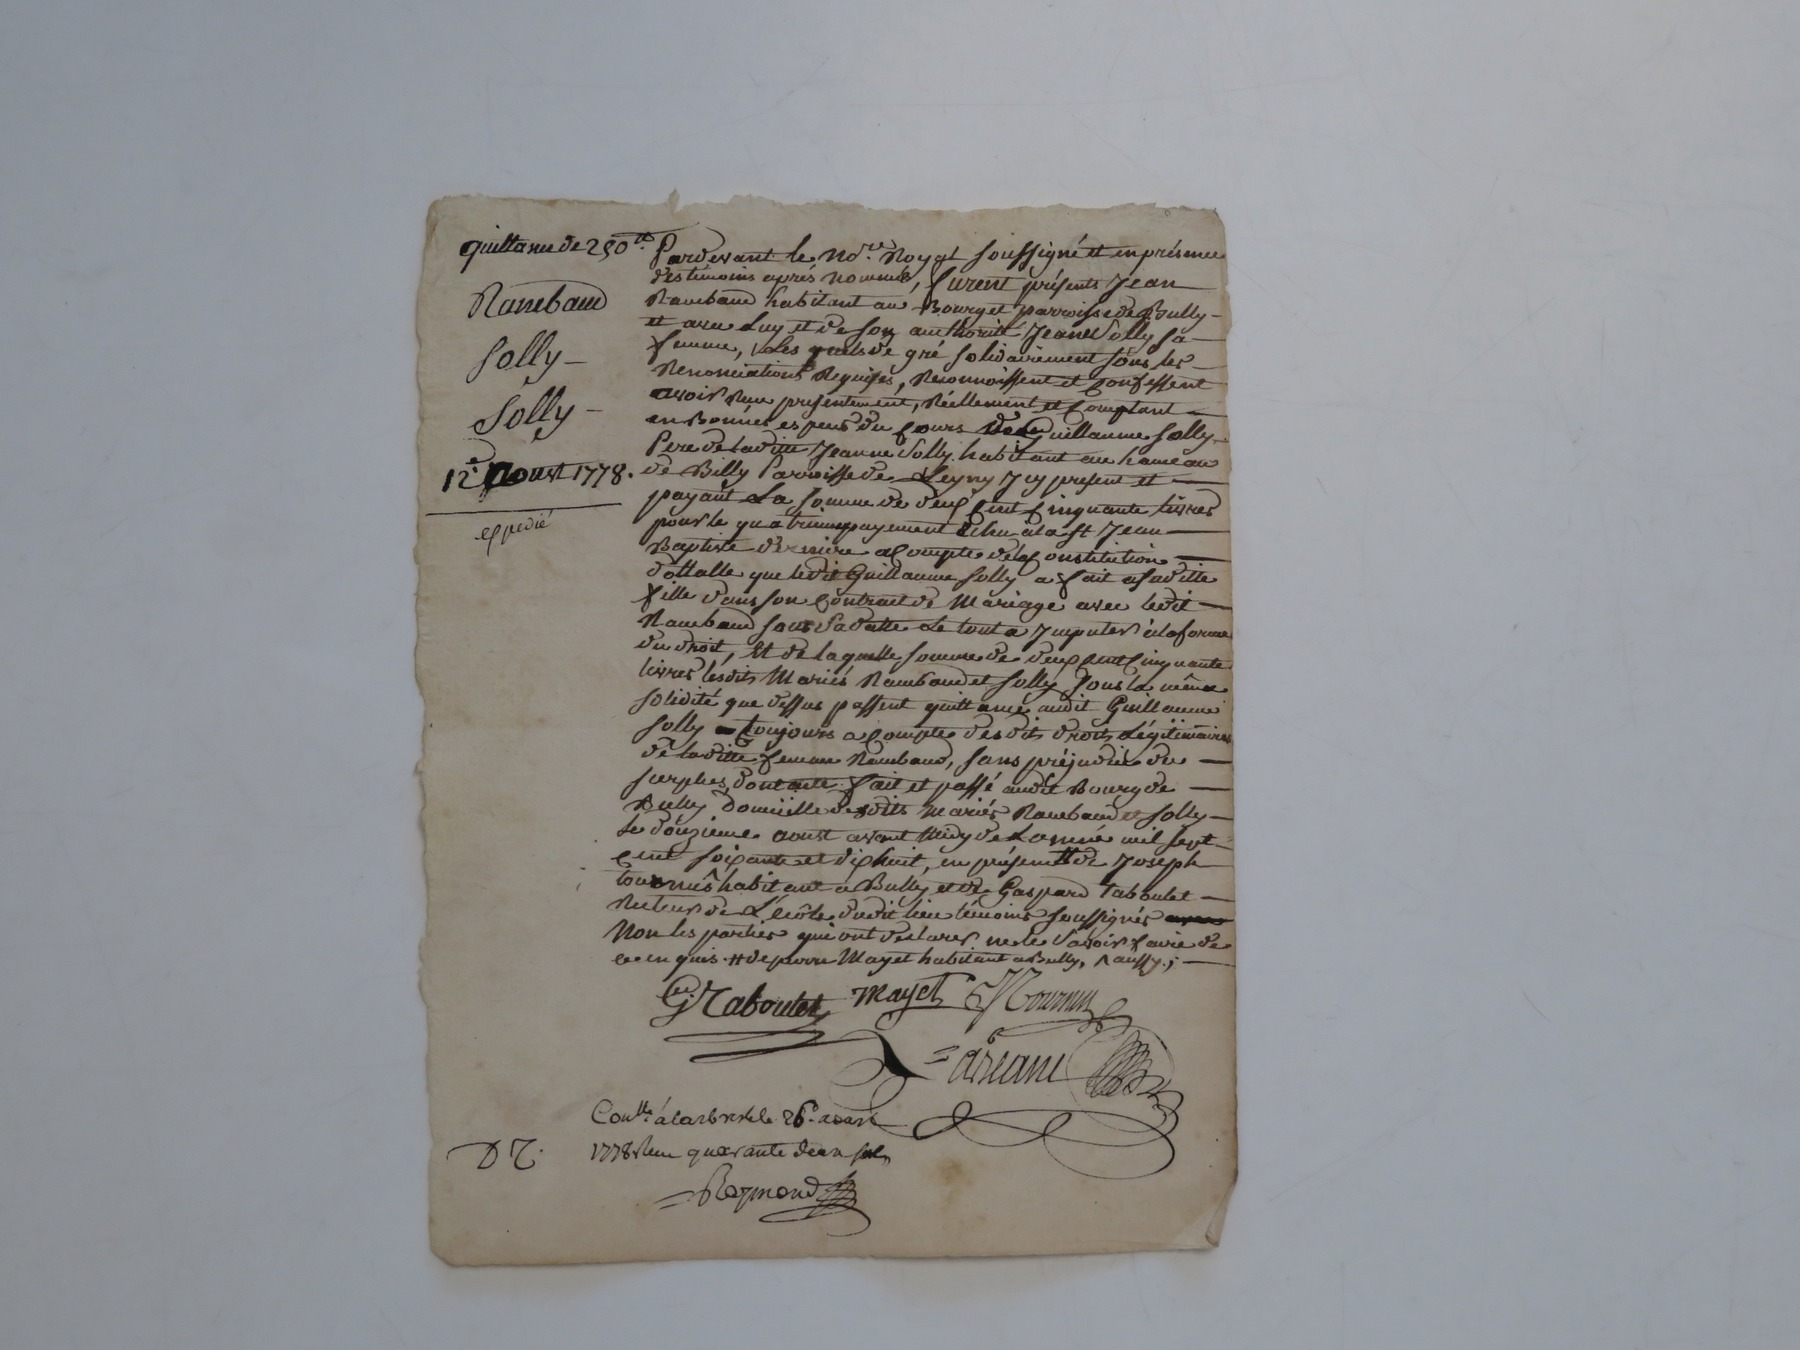 quittance de 250 lt
Rambaud
Solly
Solly
12e Aoust 1778.
expedié
Pardevant le No.re Royal soussigné et en présence
des témoins après nommés, furent présents Jean
Rambaud habitant au Bourg et parroisse de Bully
et avec luy et de son authorité Jeanne Solly sa
femme, Lesquels de gré solidairement sous les
Renonciations Requises, Reconnoissent et Confessent
avoir Reçu presentement, Réellement et Comptant
en bonnes espèces du Cours de Guillaume Solly
Pere de laditte Jeanne Solly habitant au hameau
de Billy Parroisse de Legny Icy present et
payant La somme de deux Cent Cinquante livres
pour le quatrieme payement échu à la St Jean
Baptiste derniere a Compte de la Constitution
dottalle que ledit Guillaume Solly a fait a saditte
fille dans son Contrat de Mariage avec ledit
Rambaud sous sa datte Le tout a Imputer à la forme
du droit, Et de laquelle somme de deux Cent Cinquante
livres lesdits Mariés Rambaud et Solly sous la même
solidité que dessus passent quittance audit Guillaume
Solly toujours a Compte desdits droits Légitimaires
de laditte femme Rambaud, sans préjudice du
surplus, dont acte. fait et passé audit Bourg de
Bully Domicille desdits Mariés Rambaud et Solly
Le douzieme aoust avant Midy de L'année mil sept
Cent soixante et dix huit, en présence # de Joseph
habitant à Bully et de Gaspard Taboulet
Recteur de L'école dudit lieu témoins soussignés
Non les parties qui ont déclarer ne le savoir faire de
ce enquis. # de pierre Mayet habitant a Bully, aussy;
G. Taboulet Mayet
Con.lle à larbresle le 26e. aoust
1778 Reçu quarante deux sols
Raymond